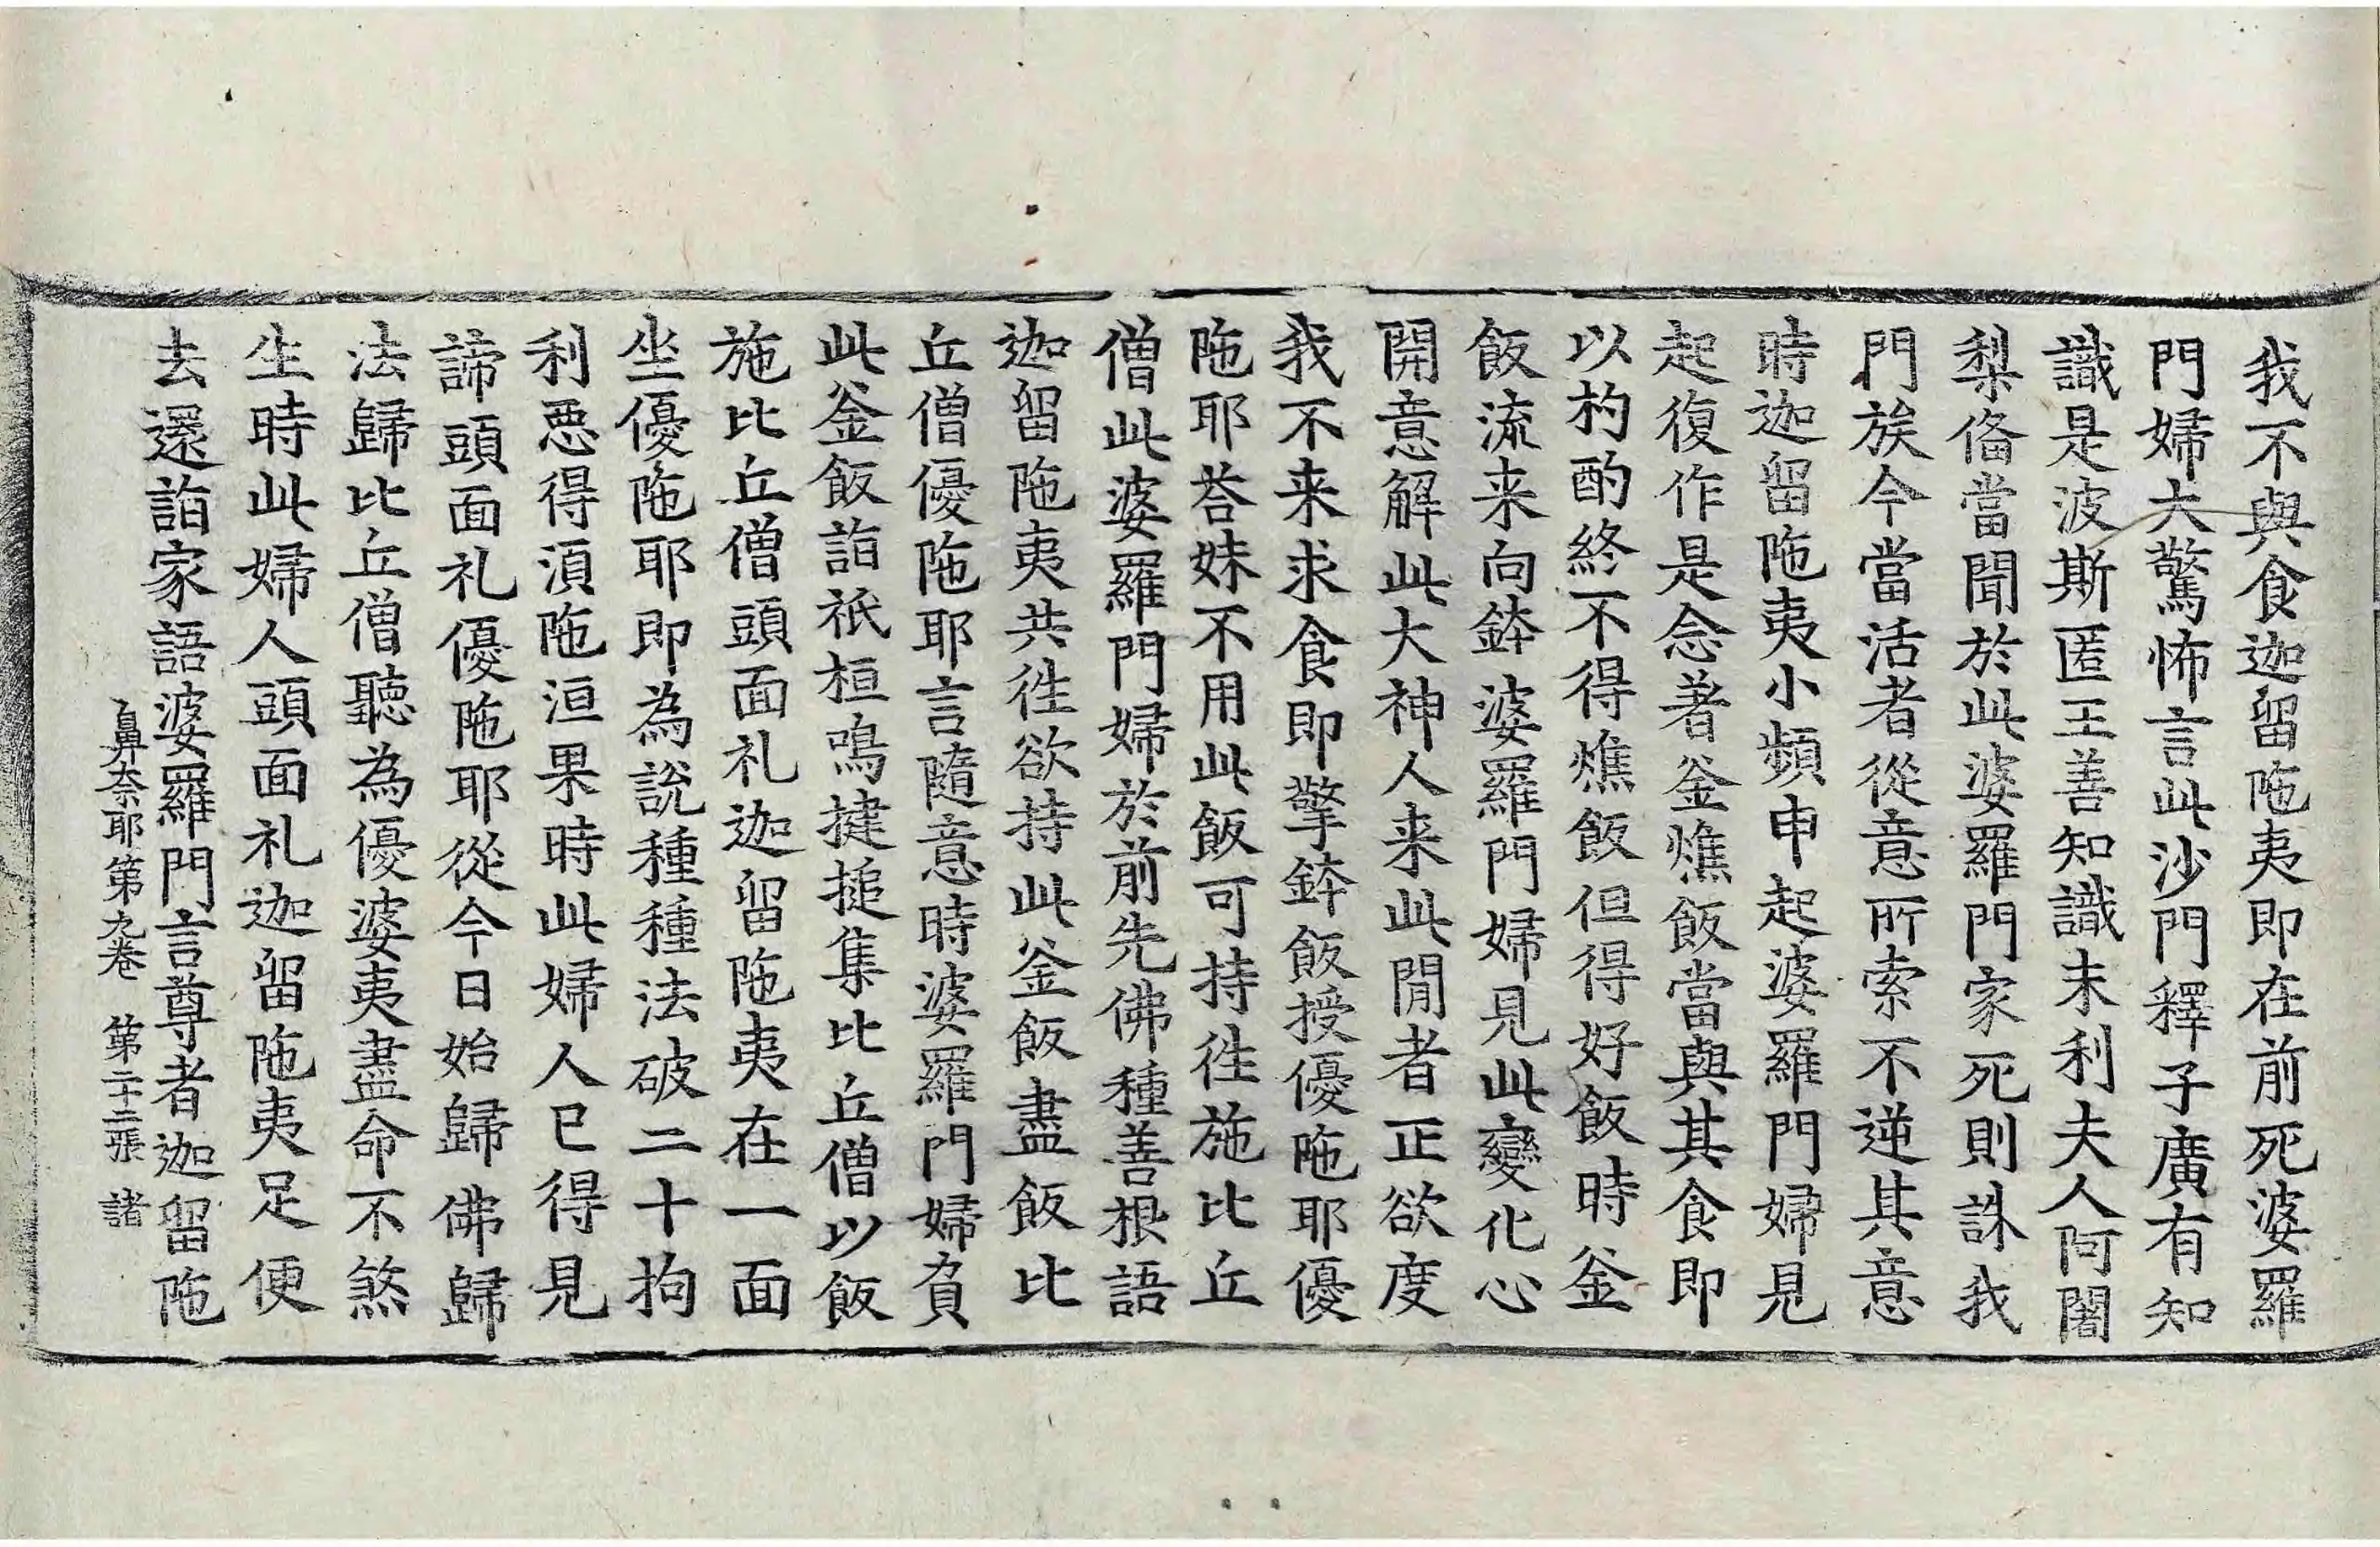 我不與食迦留陁夷即在前死婆羅
門婦大驚怖言此沙門釋子廣有知
識是波斯匿王善知識末利夫人阿闍
梨俻當聞於此婆羅門家死則誅我
門族今當活者從意所索不逆其意
時迦留陁夷小頻申起婆羅門婦見
起復作是念著釜燋飯當與其食即
以杓酌終不得燋飯但得好飯時釜
飯流来向鉢婆羅門婦見此變化心
開意解此大神人来此間者正欲度
我不来求食即擎鉢飯授優陁耶優
陁耶荅妹不用此飯可持徃施比丘
僧此婆羅門婦於前先佛種善根語
迦留陁夷共徃欲持此釜飯盡飯比
丘僧優陁耶言隨意時婆羅門婦負
此釜飯詣祇桓鳴揵搥集比丘僧以飯
施比丘僧頭面礼迦留陁夷在一面
坐優陁耶即為說種種法破二十拘
利惡得湏陁洹果時此婦人已得見
諦頭面礼優陁耶從今日始歸佛歸
法歸比丘僧聽為優婆夷盡命不煞
生時此婦人頭面礼迦留陁夷足便
去還詣家語婆羅門言尊者迦留陁
鼻奈耶第九卷 第二十二張 諸